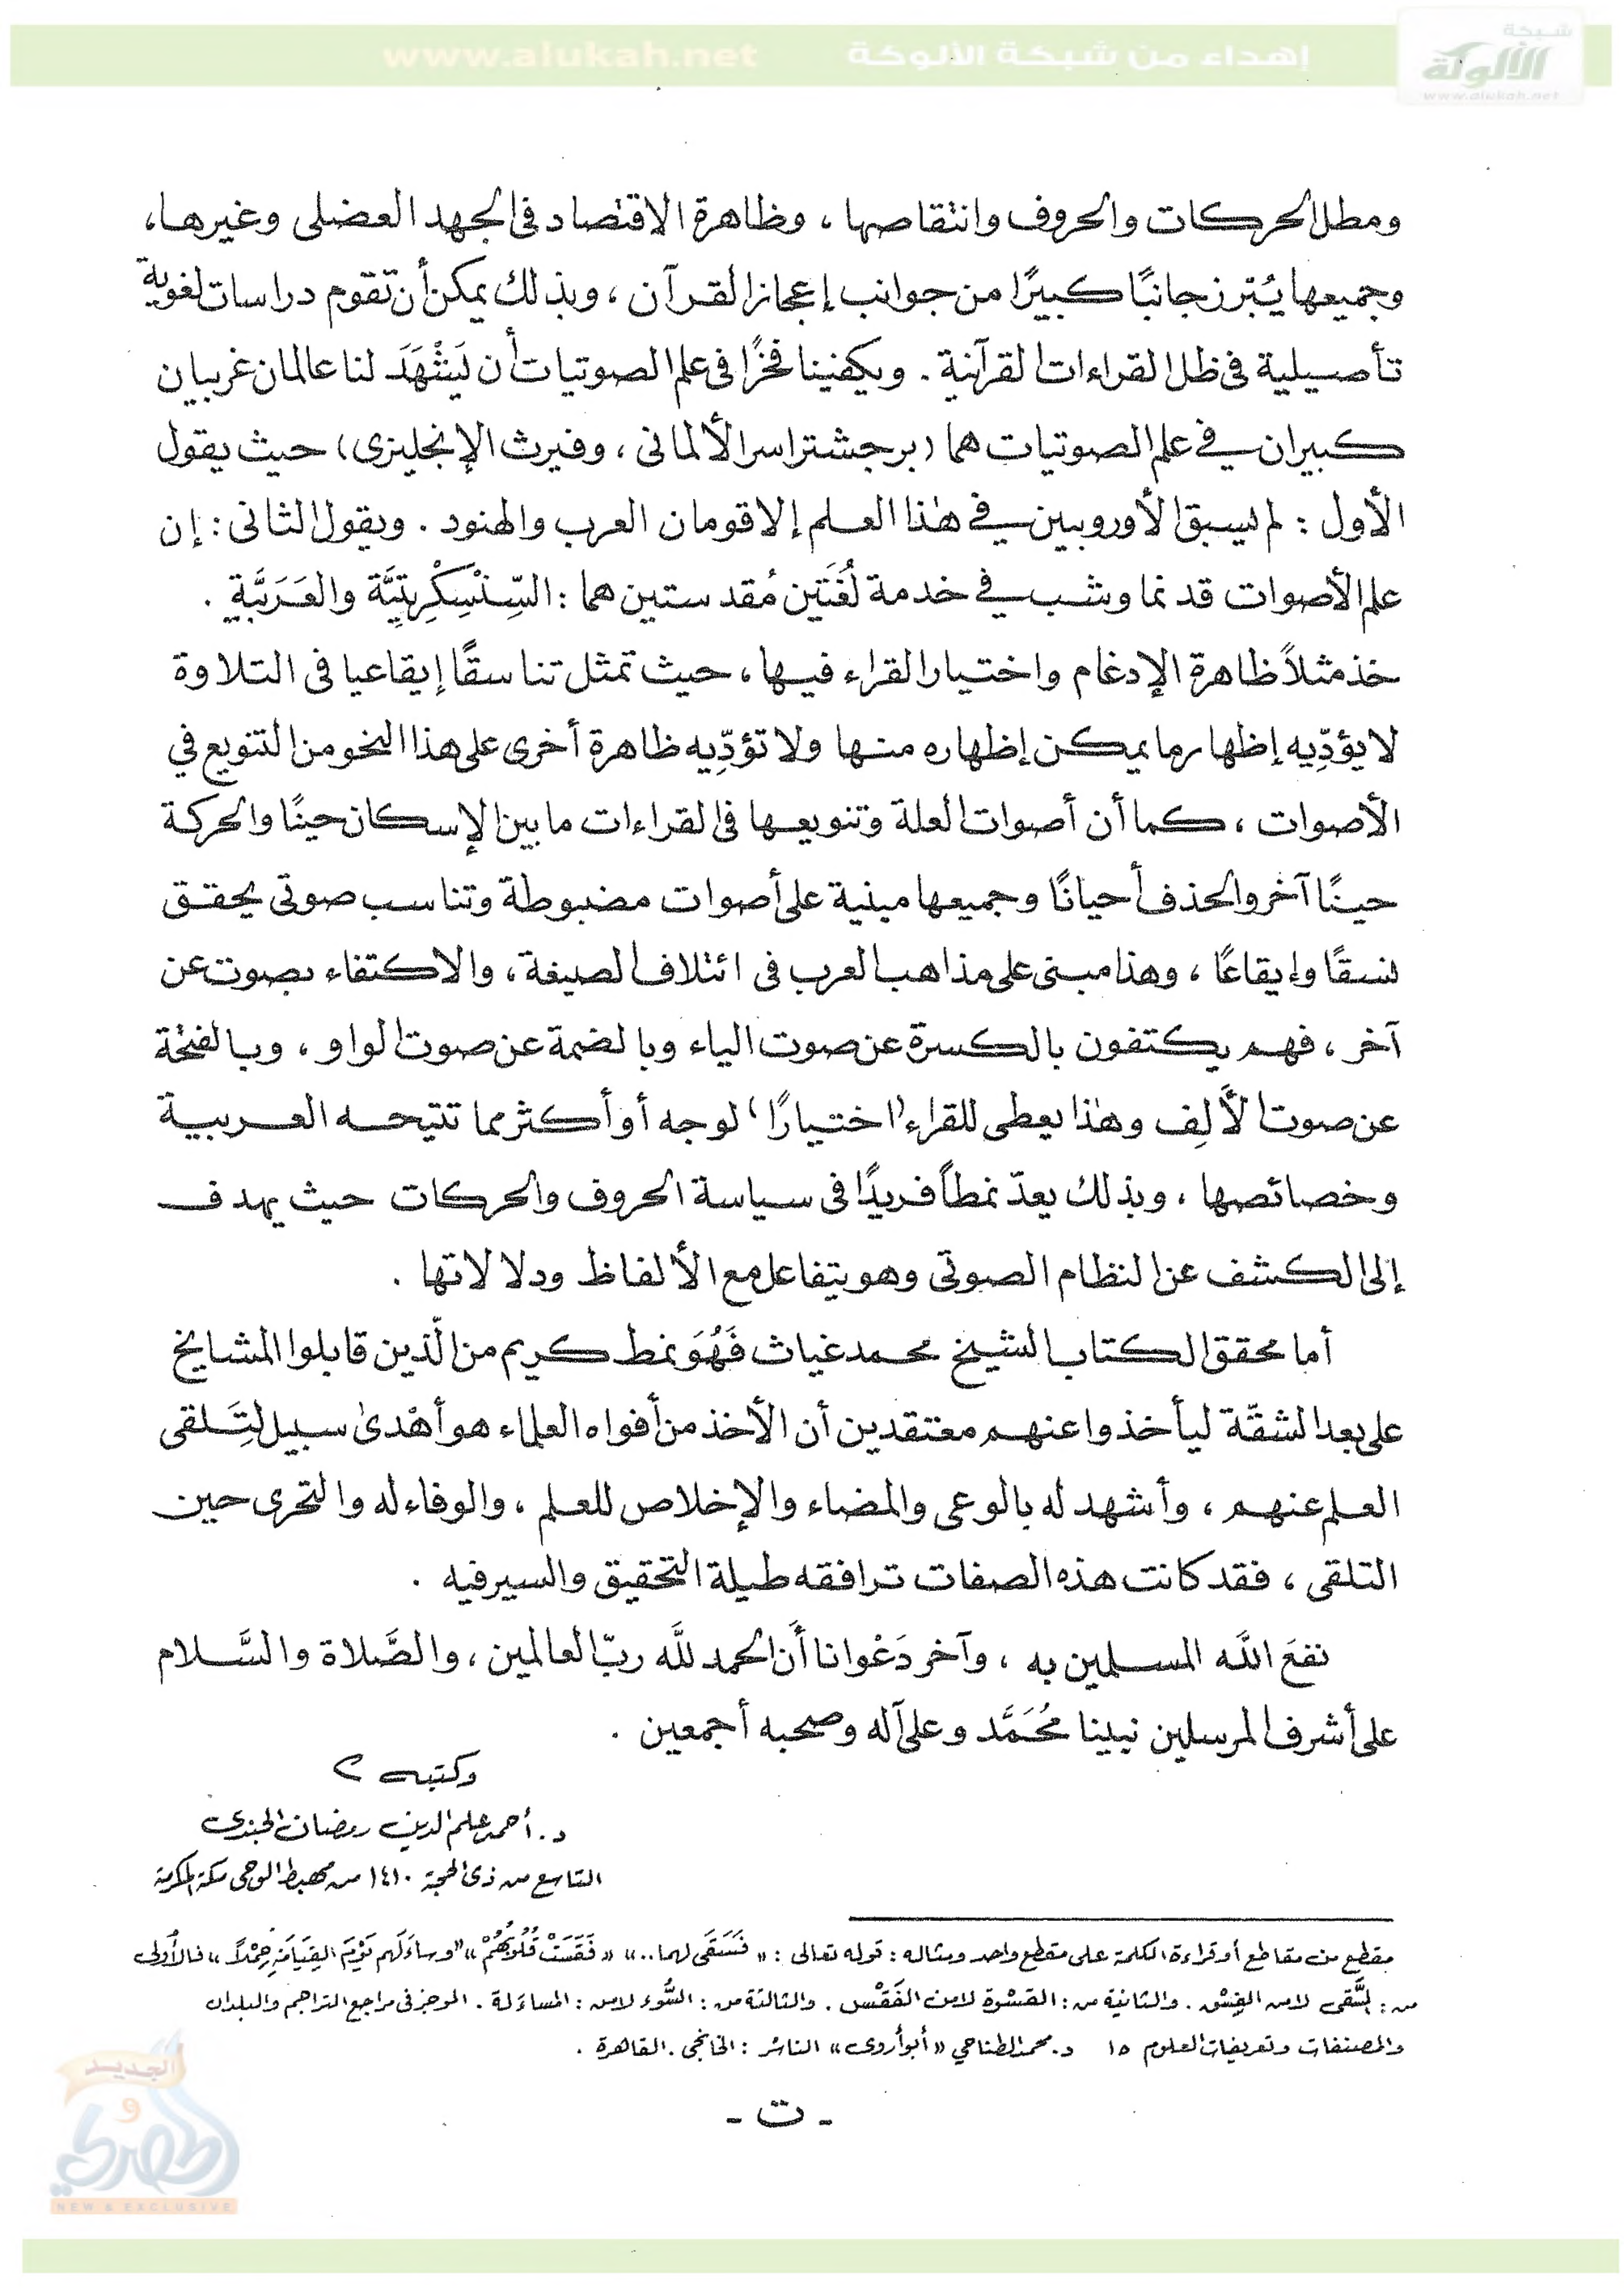 شبكة
الألوكة
www.alukah.net
إهداء من شبكة الألوكة www.alukah.net
ومطل الحركات والحروف وانتقاصها ، وظاهرة الاقتصاد فى الجهد العضلى وغيرها،
وجميعها يُبْرز جانبًا كبيرًا من جوانب إعجاز القرآن ، وبذلك يمكن أن تقوم دراسات لغوية
تأصيلية فى ظل القراءات القرآنية . ويكفينا فخرًا فى علم الصوتيات أن يَشْهَدَ لنا عالمان غربيان
كبيران في علم الصوتيات هما (برجشتراسر الألمانى ، وفيرث الإنجليزى) حيث يقول
الأول : لم يسبق الأوروبيين في هٰذا العلم إلا قومان العرب والهنود . ويقول الثانى : إن
علم الأصوات قد نما وشب في خدمة لُغَتَين مُقدستين هما : السِّنْسِكْرِيتِيَّة والعَرَبيَّةِ .
خذ مثلاً ظاهرة الإدغام واختيار القراء فيها ، حيث تمثل تناسقًا إيقاعيا فى التلاوة
لا يؤدِّيه إظهار ما يمكن إظهاره منها ولا تؤدِّيه ظاهرة أخرى على هذا النحو من التنويع في
الأصوات ، كما أن أصوات العلة وتنويعها فى القراءات ما بين الإسكان حينًا والحركة
حينًا آخر والحذف أحيانًا وجميعها مبنية على أصوات مضبوطة وتناسب صوتى يحقق
نسقًا وإيقاعًا ، وهذا مبنى على مذاهب العرب فى ائتلاف الصيغة ، والاكتفاء بصوت عن
آخر ، فهم يكتفون بالكسرة عن صوت الياء وبالضمة عن صوت الواو ، وبالفتحة
عن صوت الأَلِف وهٰذا يعطى للقراء ‘اختيارًا’ لوجه أو أكثر مما تتيحه العربية
وخصائصها ، وبذلك يعدّ نمطاً فريدًا فى سياسة الحروف والحركات حيث يهدف
إلى الكشف عن النظام الصوتى وهو يتفاعل مع الألفاظ ودلالاتها .
أما محقق الكتاب الشيخ محمد غياث فَهُوَ نمط كريم من الّذين قابلوا المشايخ
على بعد الشقّة ليأخذوا عنهم معتقدين أن الأخذ من أفواه العلماء هو أهْدىٰ سبيل لتَلقى
العلم عنهم ، وأشهد له بالوعى والمضاء والإخلاص للعلم ، والوفاء له والتحرى حين
التلقى ، فقد كانت هذه الصفات ترافقه طيلة التحقيق والسير فيه .
نفعَ اللَّه المسلمين به ، وآخر دَعْوانا أَن الحمد للَّه ربّ العالمين ، والصَّلاة والسَّلام
على أشرف المرسلين نبينا مُحَمَّد وعلى آله وصحبه أجمعين .
وكتبه
د. أحمد علم الدين رمضان الجندى
التاسع من ذى الحجة ١٤١٠ من مهبط الوحى مكة المكرمة
مقطع من مقاطع أو قراءة الكلمة على مقطع واحد ومثاله : قوله تعالى : « فَسَقَى لهما.. » « فَقَسَتْ قُلُوبُهُمْ » « وساءَ لَهم يَوْمَ القِيَامَةِ حِمْلاً » فالأولى
من : السَّقى لا من الفِسْق . والثانية من : القسْوة لا من الفَقْس . والثالثة من : السُّوء لا من : المساءَلة . الموجز فى مراجع التراجم والبلدان
والمصنفات وتعريفات العلوم ١٥ د. محمد الطناحي « أبو أروى » الناشر : الخانجى . القاهرة .
- ت -
الجديد
و
الحصري
NEW & EXCLUSIVE